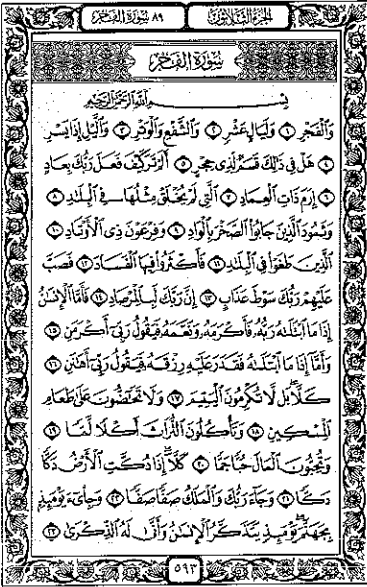 الجزء الثلاثون ٨٩ سورة الفجر
سورة الفجر
بِسْمِ ٱللَّهِ ٱلرَّحْمَٰنِ ٱلرَّحِيمِ
وَٱلْفَجْرِ ١ وَلَيَالٍ عَشْرٍ ٢ وَٱلشَّفْعِ وَٱلْوَتْرِ ٣ وَٱلَّيْلِ إِذَا يَسْرِ
٤ هَلْ فِي ذَٰلِكَ قَسَمٌ لِّذِي حِجْرٍ ٥ أَلَمْ تَرَ كَيْفَ فَعَلَ رَبُّكَ بِعَادٍ
٦ إِرَمَ ذَاتِ ٱلْعِمَادِ ٧ ٱلَّتِي لَمْ يُخْلَقْ مِثْلُهَا فِي ٱلْبِلَٰدِ ٨
وَثَمُودَ ٱلَّذِينَ جَابُوا۟ ٱلصَّخْرَ بِٱلْوَادِ ٩ وَفِرْعَوْنَ ذِي ٱلْأَوْتَادِ ١٠
ٱلَّذِينَ طَغَوْا۟ فِي ٱلْبِلَٰدِ ١١ فَأَكْثَرُوا۟ فِيهَا ٱلْفَسَادَ ١٢ فَصَبَّ
عَلَيْهِمْ رَبُّكَ سَوْطَ عَذَابٍ ١٣ إِنَّ رَبَّكَ لَبِٱلْمِرْصَادِ ١٤ فَأَمَّا ٱلْإِنسَٰنُ
إِذَا مَا ٱبْتَلَىٰهُ رَبُّهُۥ فَأَكْرَمَهُۥ وَنَعَّمَهُۥ فَيَقُولُ رَبِّي أَكْرَمَنِ ١٥
وَأَمَّا إِذَا مَا ٱبْتَلَىٰهُ فَقَدَرَ عَلَيْهِ رِزْقَهُۥ فَيَقُولُ رَبِّي أَهَٰنَنِ ١٦
كَلَّا ۖ بَل لَّا تُكْرِمُونَ ٱلْيَتِيمَ ١٧ وَلَا تَحَٰضُّونَ عَلَىٰ طَعَامِ
ٱلْمِسْكِينِ ١٨ وَتَأْكُلُونَ ٱلتُّرَاثَ أَكْلًا لَّمًّا ١٩
وَتُحِبُّونَ ٱلْمَالَ حُبًّا جَمًّا ٢٠ كَلَّا إِذَا دُكَّتِ ٱلْأَرْضُ دَكًّا
دَكًّا ٢١ وَجَاءَ رَبُّكَ وَٱلْمَلَكُ صَفًّا صَفًّا ٢٢ وَجِا۟ىءَ يَوْمَئِذٍ
بِجَهَنَّمَ ۚ يَوْمَئِذٍ يَتَذَكَّرُ ٱلْإِنسَٰنُ وَأَنَّىٰ لَهُ ٱلذِّكْرَىٰ ٢٣
٥٩٣